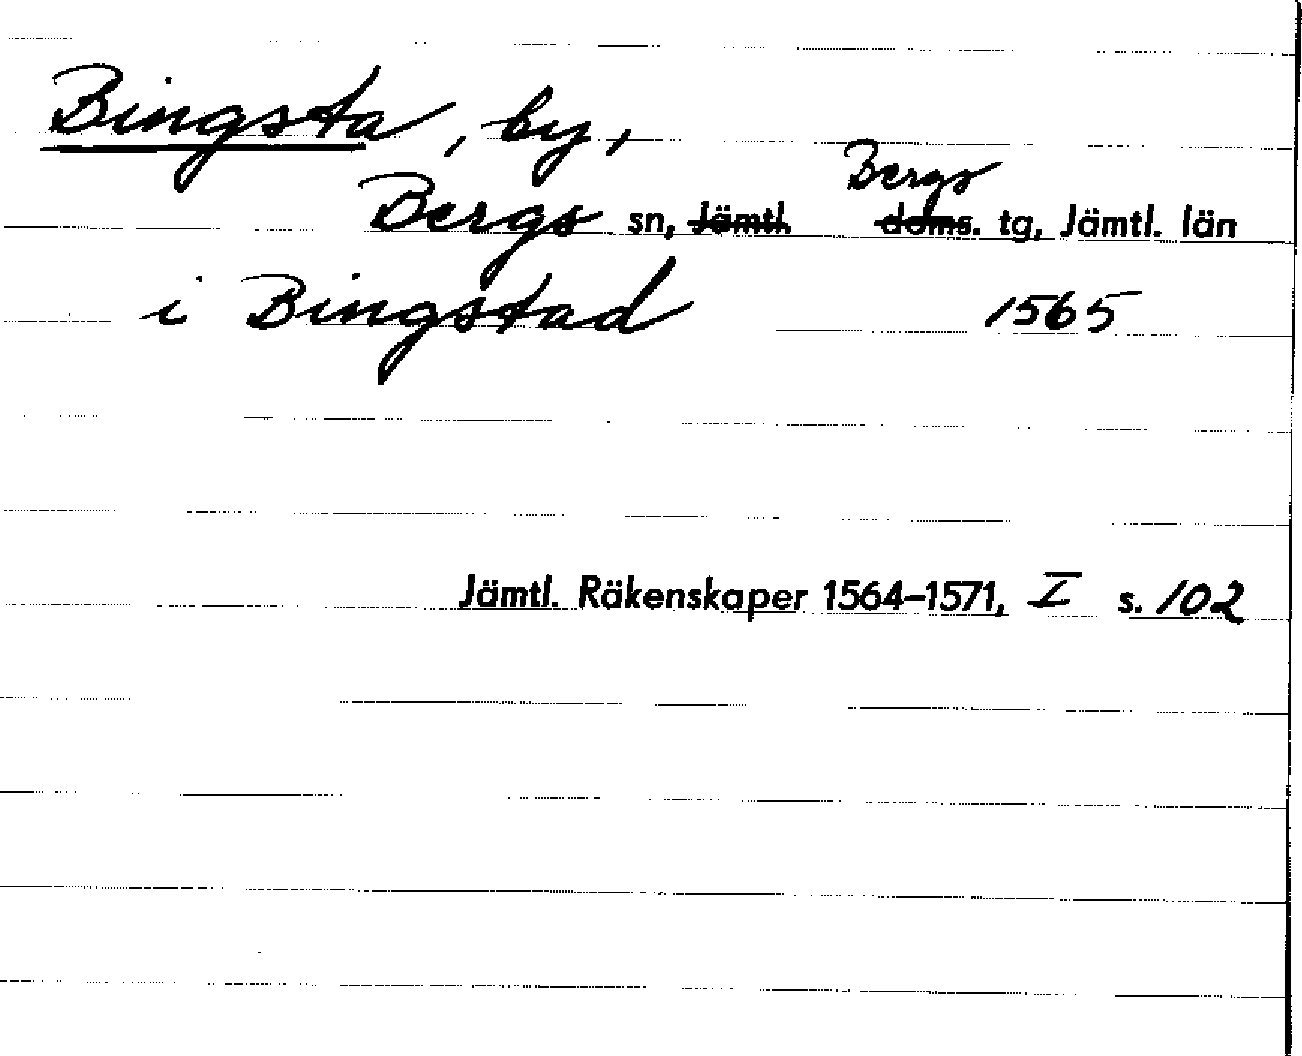 Bingsta, by,
Bergs
Bergs sn, Jämtl. doms. tg, Jämtl. län
i Bingstad 1565
Jämtl. Räkenskaper 1564–1571, I s. 102